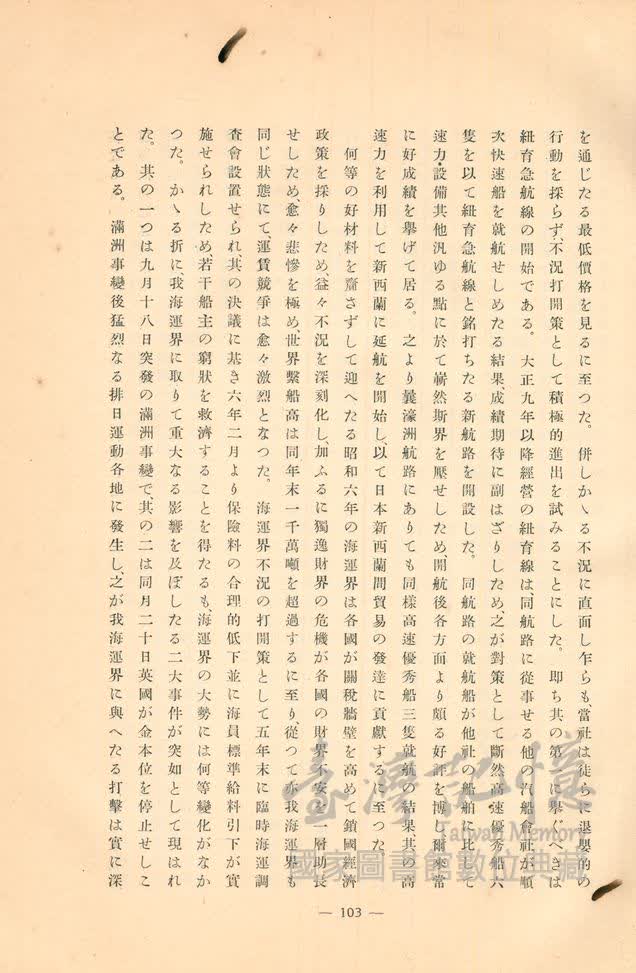 を通じたる最低價格を見るに至つた。併しかゝる不況に直面し乍らも、當社は徒らに退嬰的の
行動を採らず、不況打開策として積極的進出を試みることにした。卽ち其の第一に擧ぐべきは
紐育急航線の開始である。大正九年以降經營の紐育線は、同航路に從事せる他の汽船會社が順
次快速船を就航せしめたる結果、成績期待に副はざりしため、之が對策として斷然高速優秀船六
隻を以て紐育急航線と銘打ちたる新航路を開設した。同航路の就航船が他社の船舶に比して
速力・設備其他汎ゆる點に於て嶄然斯界を壓せしため、開航後各方面より頗る好評を博し、爾來常
に好成績を擧げて居る。之より曩濠洲航路にありても同樣高速優秀船三隻就航の結果其の高
速力を利用して新西蘭に延航を開始し、以て日本新西蘭間貿易の發達に貢獻するに至つた。
何等の好材料を齎さずして迎へたる昭和六年の海運界は各國が關稅牆壁を高めて鎖國經濟
政策を採りしため、益々不況を深刻化し、加ふるに獨逸財界の危機が各國の財界不安を一層助長
せしため、愈々悲慘を極め、世界繫船高は同年末一千萬噸を超過するに至り、從つて亦我海運界も
同じ狀態にて、運賃競爭は愈々激烈となつた。海運界不況の打開策として五年末に臨時海運調
査會設置せられ、其の決議に基き六年二月より保險料の合理的低下並に海員標準給料引下が實
施せられしため、若干船主の窮狀を救濟することを得たるも、海運界の大勢には何等變化がなか
つた。かゝる折に、我海運界に取りて重大なる影響を及ぼしたる二大事件が突如として現はれ
た。其の一つは九月十八日突發の滿洲事變で、其の二は同月二十日英國が金本位を停止せしこ
とである。滿洲事變後猛烈なる排日運動各地に發生し、之が我海運界に與へたる打擊は實に深
— 103 —
臺灣記憶
Taiwan Memory
國家圖書館數位典藏